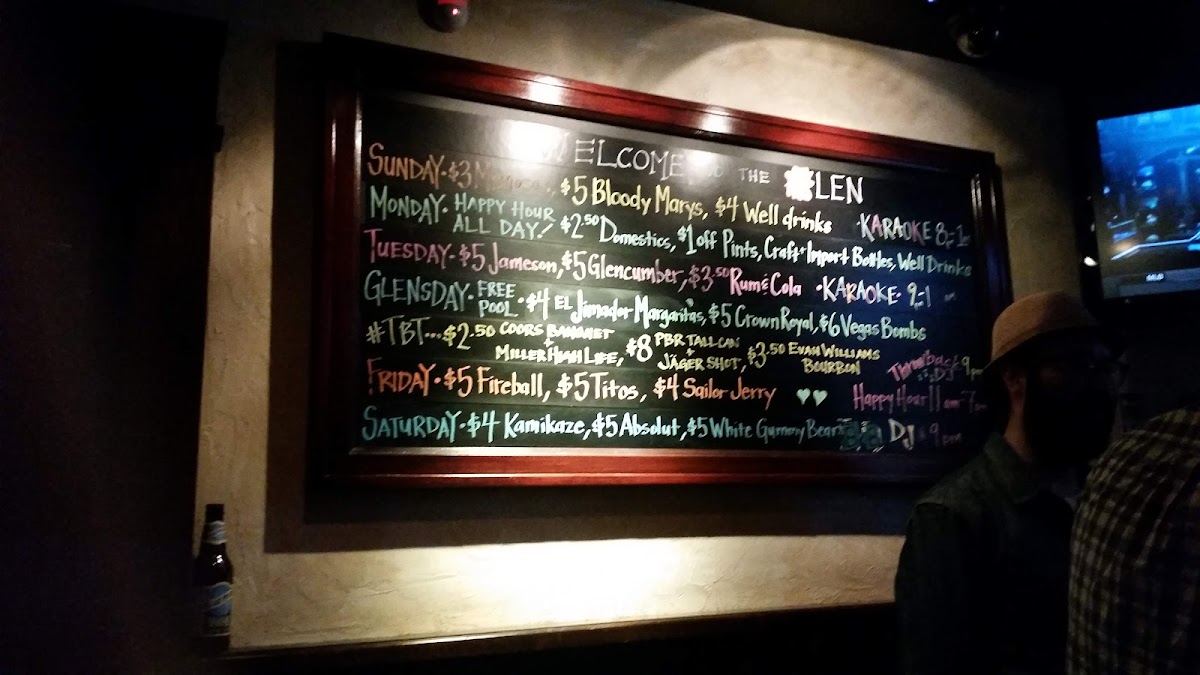 WELCOME TO THE GLEN
SUNDAY · $3 Mimosas, $5 Bloody Marys, $4 Well drinks · KARAOKE 8-1
MONDAY · HAPPY HOUR ALL DAY! $2.50 Domestics, $1 off Pints, Craft + Import Bottles, Well Drinks
TUESDAY · $5 Jameson, $5 Glencumber, $3.50 Rum & Cola · KARAOKE · 9-1 am
GLENSDAY · FREE POOL · $4 EL Jimador Margaritas, $5 Crown Royal, $6 Vegas Bombs
#TBT... $2.50 COORS BANQUET + MILLER HIGH LIFE, $8 PBR TALLCAN + JÄGER SHOT, $3.50 EVAN WILLIAMS BOURBON Throwback DJ 9pm
FRIDAY · $5 Fireball, $5 Titos, $4 Sailor Jerry Happy Hour 11am-7pm
SATURDAY · $4 Kamikaze, $5 Absolut, $5 White Gummy Bear DJ 9pm